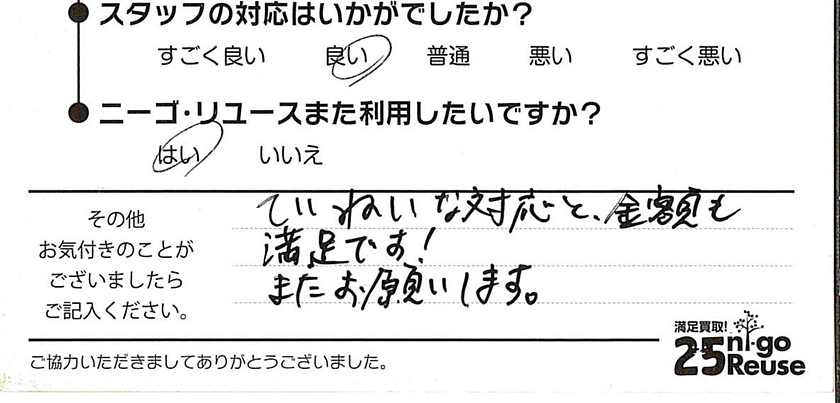 ●スタッフの対応はいかがでしたか？
すごく良い 良い 普通 悪い すごく悪い
●ニーゴ・リユースまた利用したいですか？
はい いいえ
その他
お気付きのことが
ございましたら
ご記入ください。
ていねいな対応と、金額も
満足です!
またお願いします。
ご協力いただきましてありがとうございました。
満足買取!
25 ni-go
Reuse